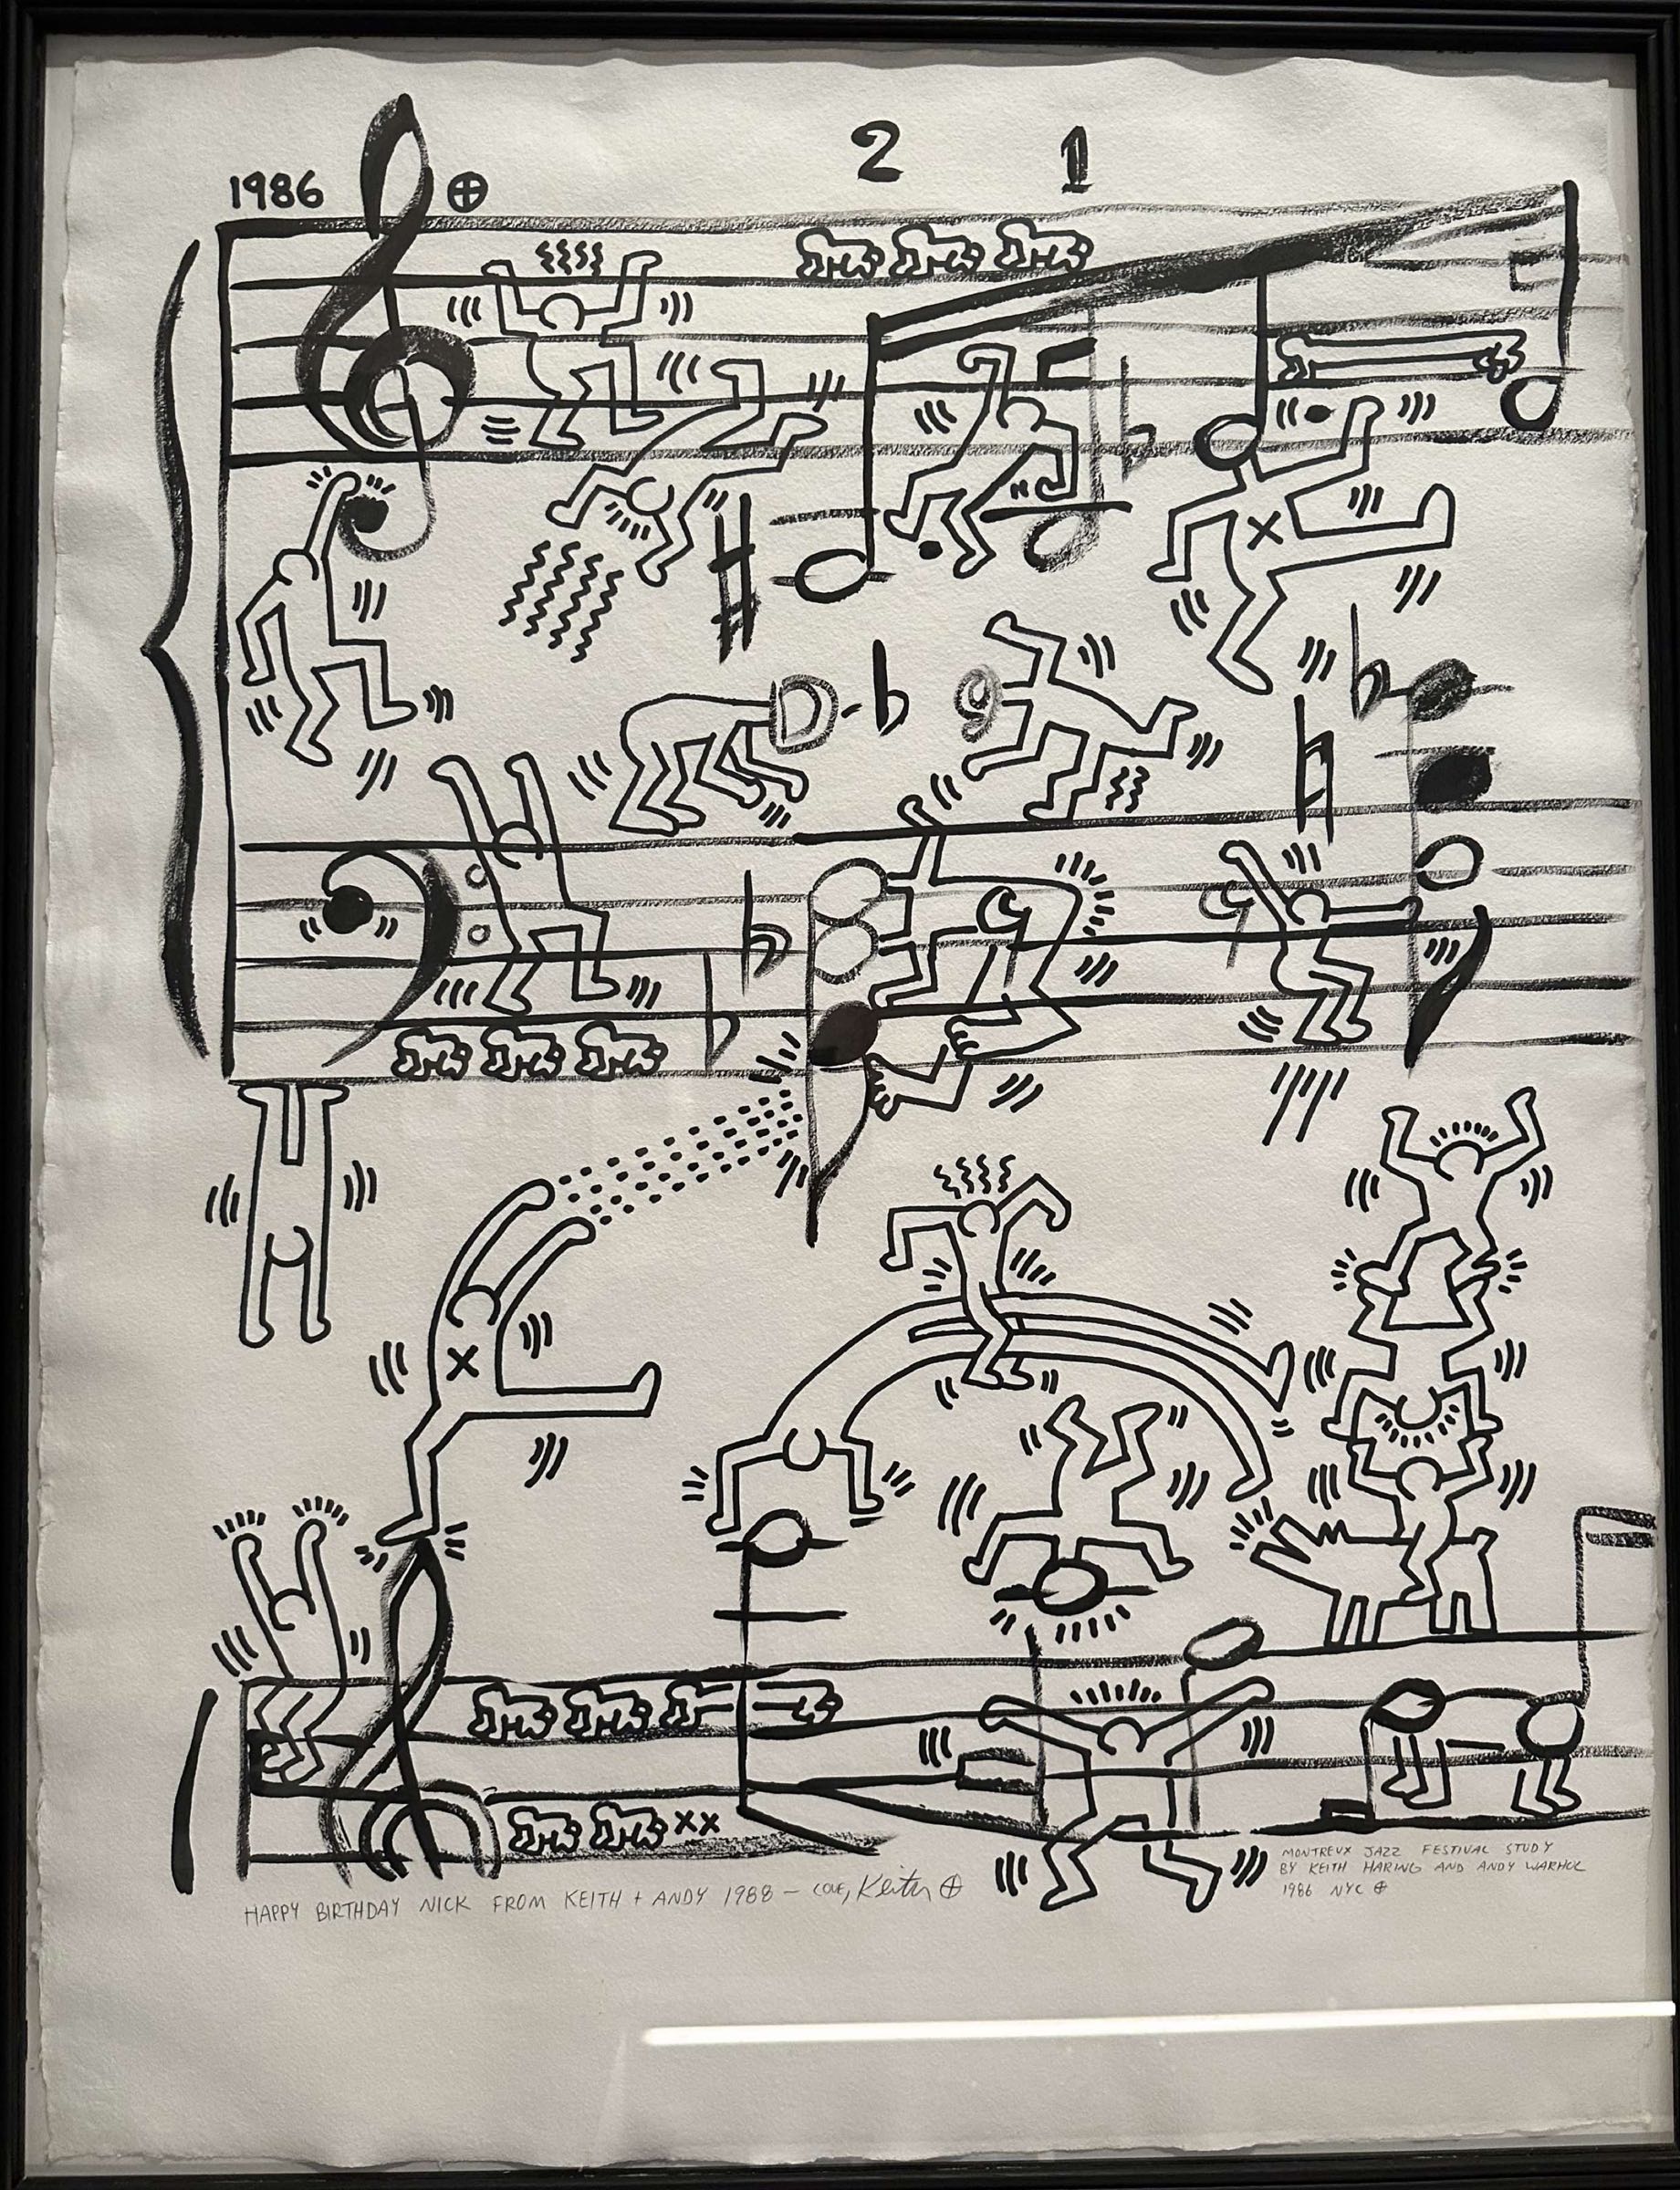 1986
2 1
MONTREUX JAZZ FESTIVAL STUDY
BY KEITH HARING AND ANDY WARHOL
1986 NYC ⊕
HAPPY BIRTHDAY NICK FROM KEITH + ANDY 1988 – LOVE, Keith ⊕